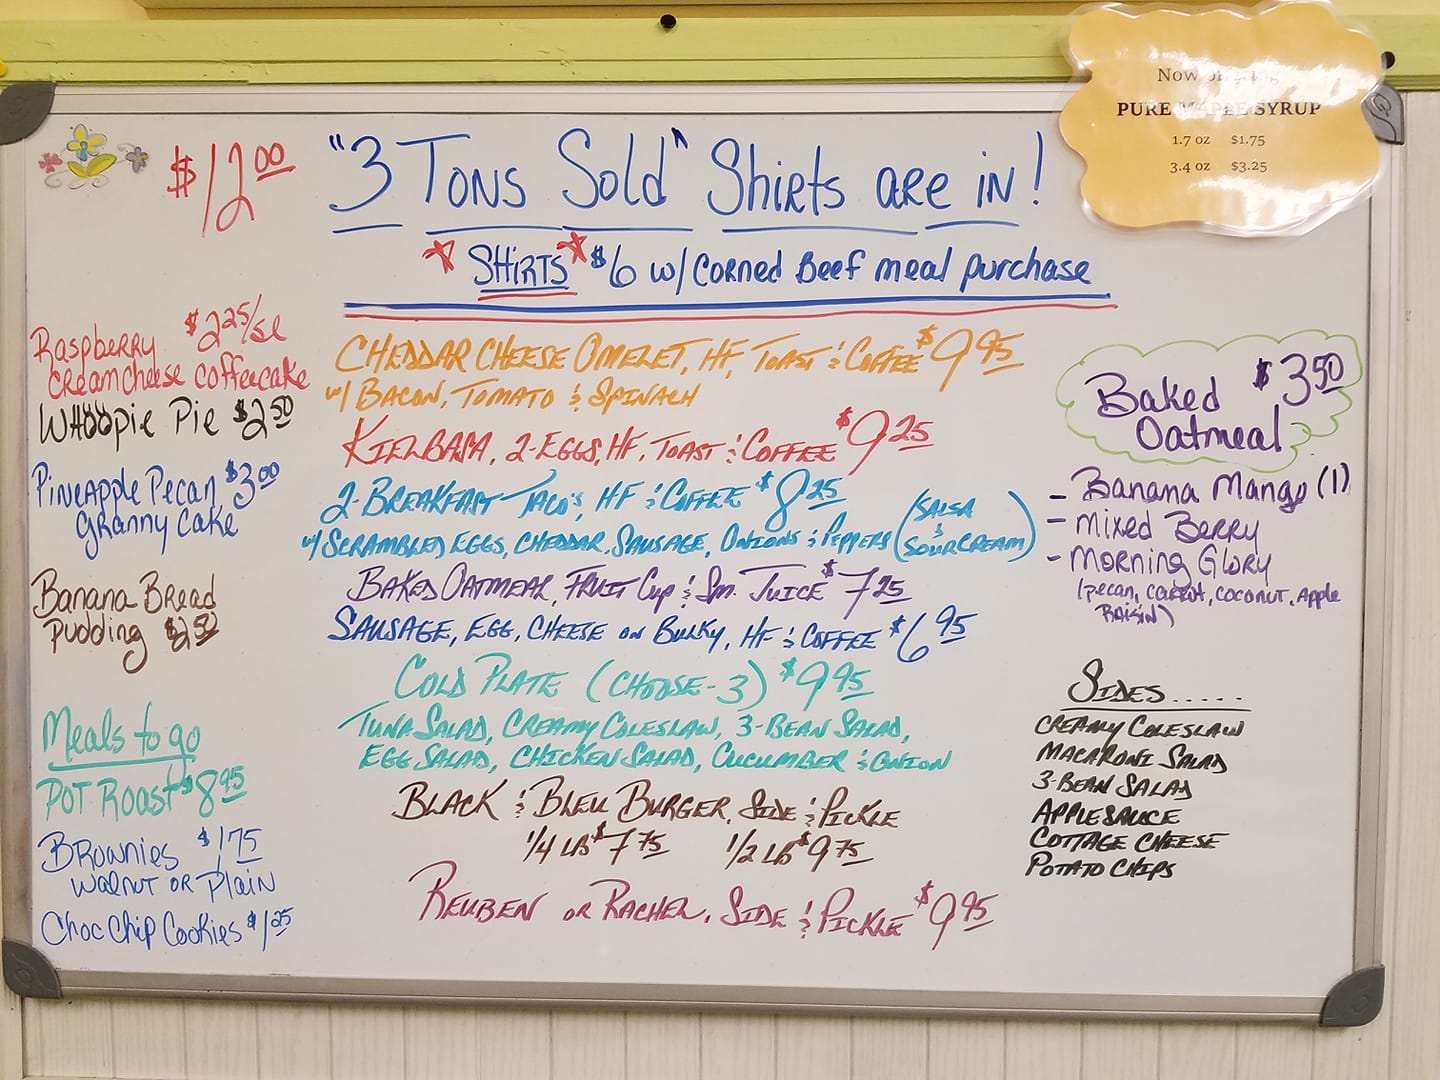 $12.00
"3 Tons Sold" Shirts are in!
SHIRTS $6 w/ Corned Beef meal purchase
Now
PURE MAPLE SYRUP
1.7 oz $1.75
3.4 oz $3.25
Raspberry $2.25/sl
creamcheese coffeecake
Whoopie Pie $2.50
Pineapple Pecan $3.00
Granny Cake
Banana Bread
pudding $2.50
Meals to go
Pot Roast $8.95
Brownies $1.75
Walnut or plain
Choc Chip Cookies $1.25
Cheddar Cheese Omelet, HF, Toast & Coffee $9.95
w/ Bacon, Tomato & Spinach
Kielbasa, 2-Eggs, HF, Toast & Coffee $9.25
2-Breakfast Taco's, HF & Coffee $8.25
w/ Scrambled Eggs, Cheddar, Sausage, Onions & Peppers (Salsa
& Sour Cream)
Baked Oatmeal, Fruit Cup & Sm. Juice $7.25
Sausage, Egg, Cheese on Bulky, HF & Coffee $6.95
Cold Plate (Choose-3) $9.95
Tuna Salad, Creamy Coleslaw, 3-Bean Salad,
Egg Salad, Chicken Salad, Cucumber & Onion
Black & Bleu Burger, Side & Pickle
1/4 LB $7.75 1/2 LB $9.75
Reuben or Rachel, Side & Pickle $9.95
Baked $3.50
Oatmeal
- Banana Mango (1)
- Mixed Berry
- Morning Glory
(pecan, carrot, coconut, Apple
Raisin)
Sides.....
Creamy Coleslaw
Macaroni Salad
3-Bean Salad
Applesauce
Cottage Cheese
Potato Chips